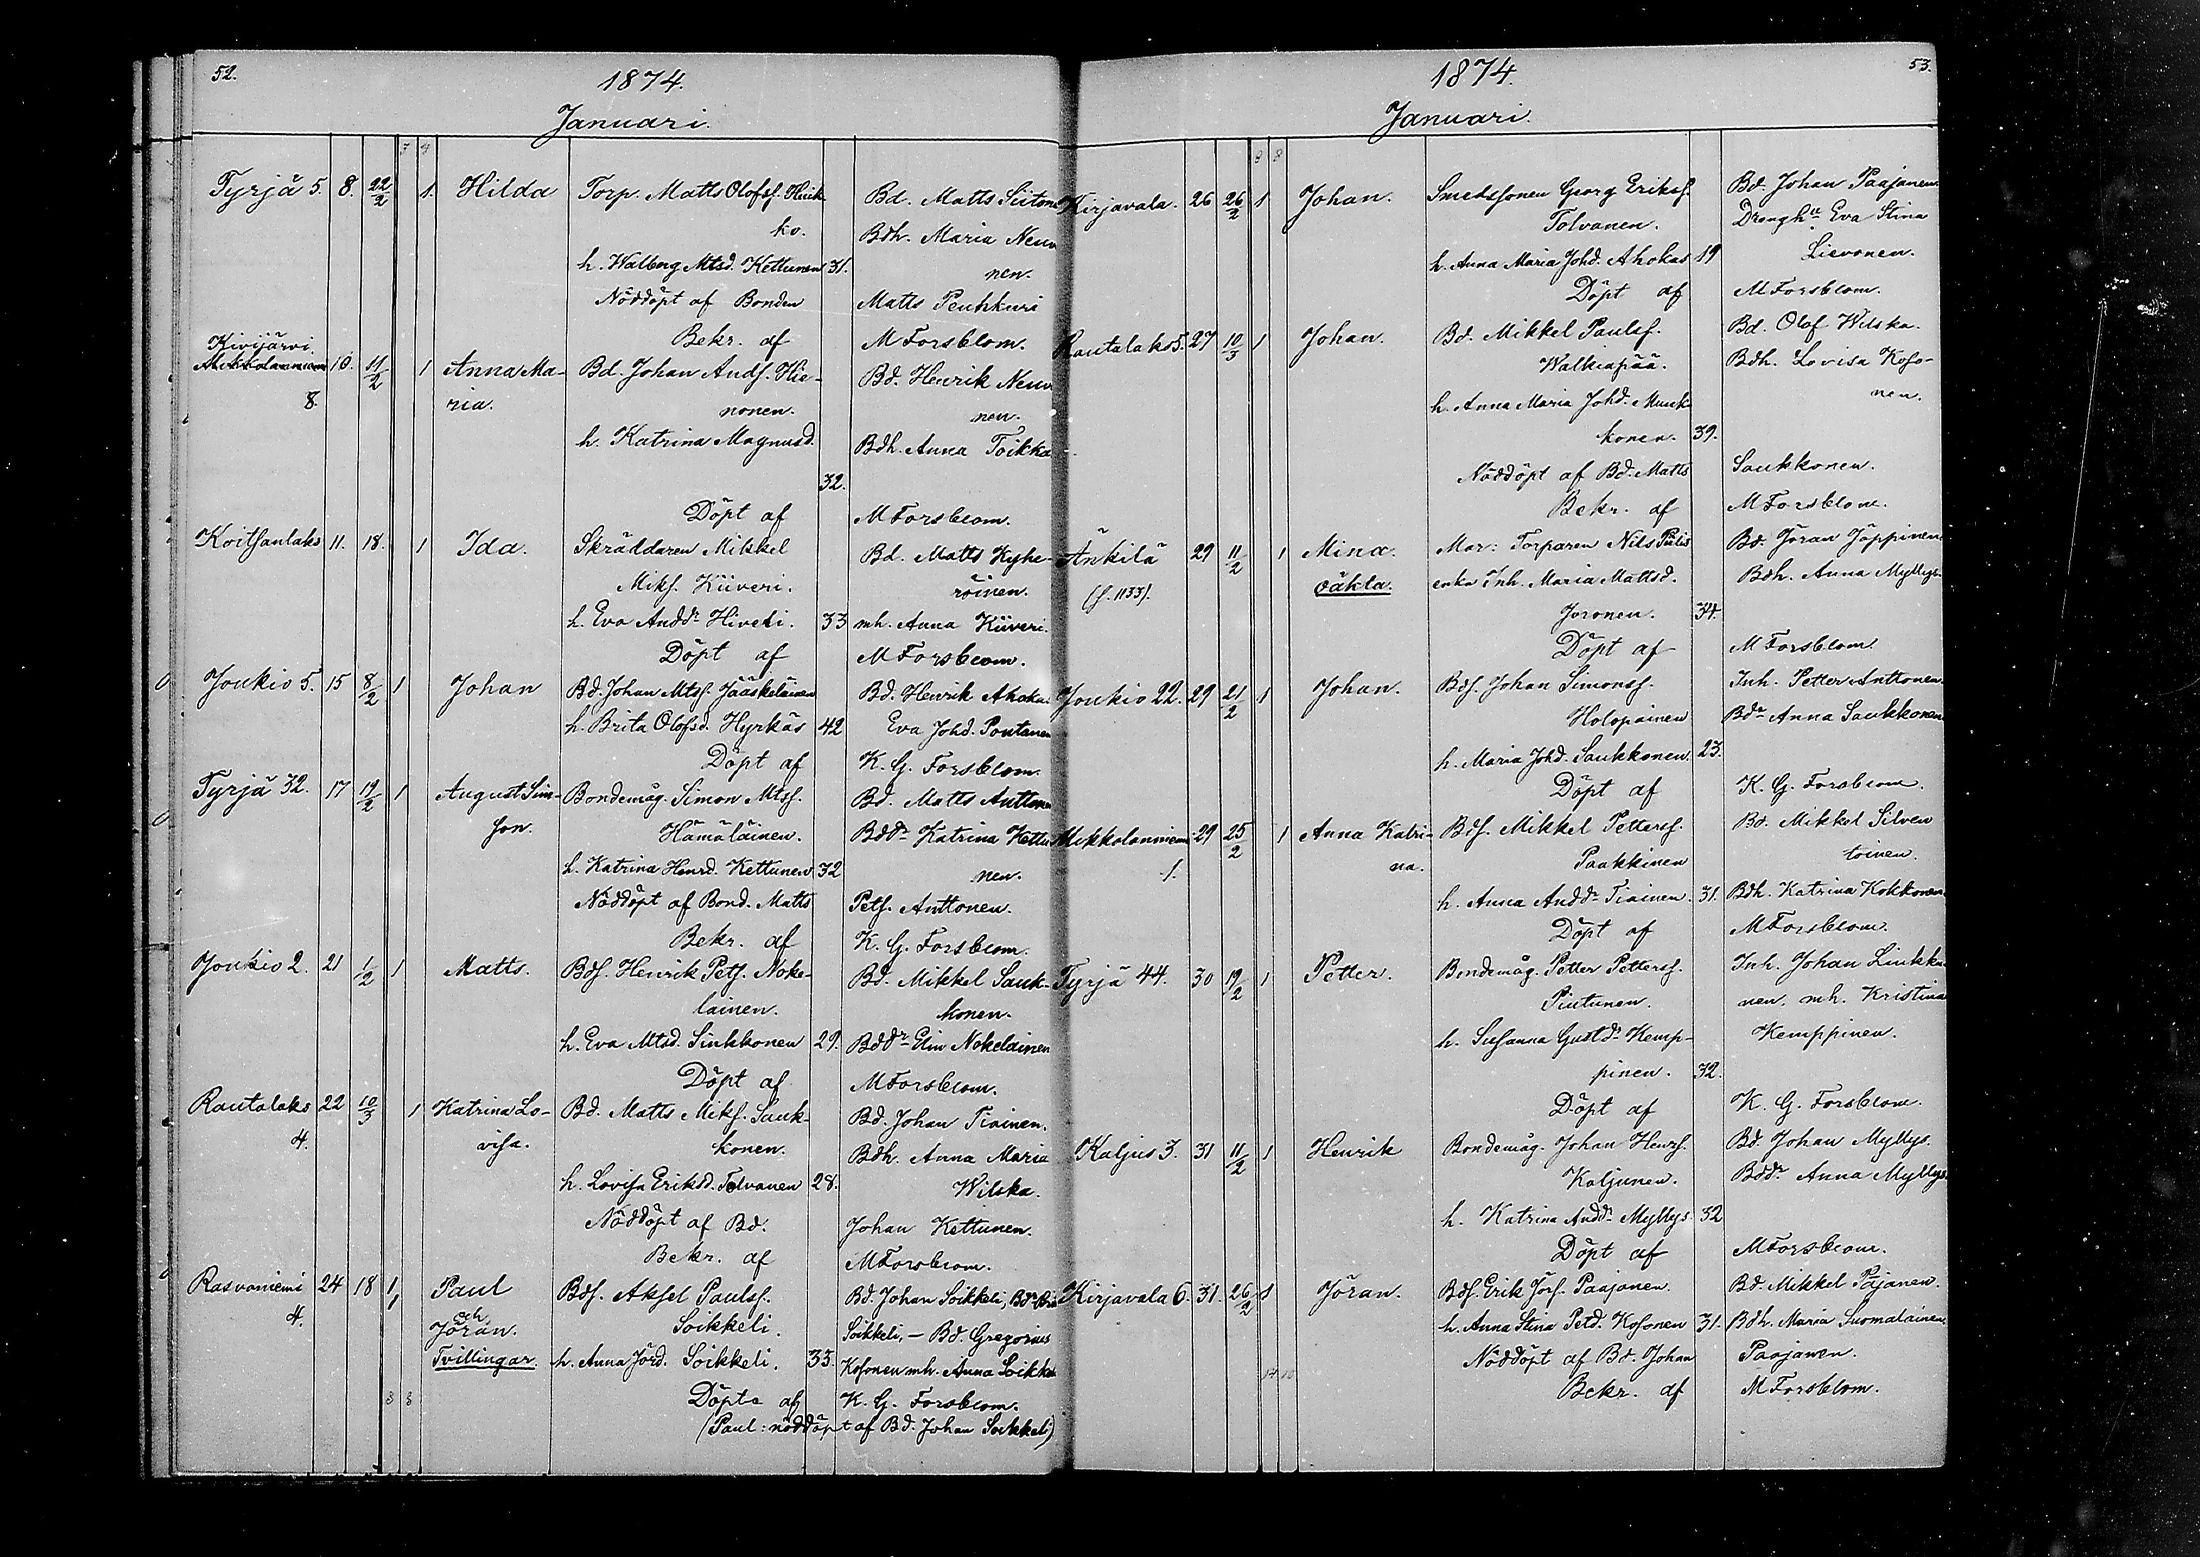 52.
1874.
Januari.
3 4
Tyrjä 5. 8. 22/2 1. Hilda Torp. Matts Olofsf. Heik- Bd. Matts Siitone
ko. Bdh. Maria Neuv
h. Walborg Mtsd. Kettunen 31. nen.
Nöddöpt af Bonden Matts Peuhkuri
Bekr. af M Forsblom.
Kivijärvi.
Mikkolanniemi 10. 11/2 1 Anna Ma- Bd. Johan Andf. Hie- Bd. Henrik Neuv
8. ria. nonen. nen.
h. Katrina Magnusd. Bdh. Anna Toikka
32.
Döpt af M Forsblom.
Koitsanlaks 11. 18. 1 Ida. Skräddaren Mikkel Bd. Matts Kyhe-
Mikf. Kiiveri. röinen.
h. Eva Andd:r Hiveli. 33 mh. Anna Kiiveri.
Döpt af M Forsblom.
Joukio 5. 15 8/2 1 Johan Bd. Johan Mtsf. Jääskeläinen Bd. Henrik Ahoka
h. Brita Olofsd. Hyrkäs 42 Eva Johd. Pontanen
Döpt af K. G. Forsblom.
Tyrjä 32. 17 19/2 1 August Sim- Bondemåg. Simon Mtsf. Bd. Matts Anttone
son. Hämäläinen. Bdd:r Katrina Kettu
h. Katrina Henrd. Kettunen 32 nen.
Nöddöpt af Bond. Matts Petf. Anttonen.
Bekr. af K. G. Forsblom.
Joukio 2. 21 1/2 1 Matts. Bdf. Henrik Petf. Noke- Bd. Mikkel Sauk-
lainen. konen.
h. Eva Mtsd. Sinkkonen 29. Bdd:r Elin Nokelainen
Döpt af M Forsblom.
Rautalaks 22 10/3 1 Katrina Lo- Bd. Matts Mikf. Sauk- Bd. Johan Tiainen.
4. visa. konen. Bdh. Anna Maria
h. Lovisa Eriksd. Tolvanen 28. Wilska.
Nöddöpt af Bd. Johan Kettunen.
Bekr. af M Forsblom.
Rasvaniemi 24 18 1 Paul Bdf. Aksel Paulsf. Bd. Johan Soikkeli, Bd:r
4. 1 och Jöran. Soikkeli. Soikkeli, – Bd. Gregorius
Tvillingar. h. Anna Jörd. Soikkeli. 33. Kosonen mh. Anna Soikke
3 3 Döpte af K. G. Forsblom.
(Paul: nöddöpt af Bd. Johan Soikkeli)
53.
1874.
Januari.
8 8
Kirjavala. 26 26/2 1 Johan. Smedssonen Georg Eriksf. Bd. Johan Paajanen.
Tolvanen. Eva Stina
h. Anna Maria Johd. Ahokas 19 Lievonen.
Döpt af M Forsblom.
Rautalaks 5. 27 10/3 1 Johan. Bd. Mikkel Paulsf. Bd. Olof Wilska.
Walkiapää. Bdh. Lovisa Koso-
h. Anna Maria Johd. Muuk- nen.
konen. 39.
Nöddöpt af Bd. Matts Saukkonen.
Bekr. af M Forsblom.
Änkilä 29 11/2 1 Mina. Mor: Torparen Nils Pulis Bd. Jöran Jäppinen.
(f. 1133). oäkta. enka Inh. Maria Mattsd. Bdh. Anna Myllys.
Joronen. 34.
Döpt af M Forsblom.
Joukio 22. 29 21/2 1 Johan. Bdf. Johan Simonsf. Inh. Petter Anttonen.
Holopainen Bd:r Anna Saukkonen
h. Maria Johd. Saukkonen 23.
Döpt af K. G. Forsblom.
Mikkolanniemi 29 25/2 1 Anna Katri- Bdf. Mikkel Pettersf. Bd. Mikkel Silven
1. na. Paakkinen toinen.
h. Anna Andd:r Tiainen. 31. Bdh. Katrina Kokkonen.
Döpt af M Forsblom.
Tyrjä 44. 30 19/2 1 Petter. Bondemåg. Petter Pettersf. Inh. Johan Liukko-
Piutunen. nen. mh. Kristina
h. Susanna Gustd:r Kemp- Kemppinen.
pinen. 32.
Döpt af K. G. Forsblom.
Kaljus 3. 31 11/2 1 Henrik Bondemåg. Johan Henrf. Bd. Johan Myllys.
Kaljunen. Bdd:r Anna Myllys
h. Katrina Andd:r Myllys 32
Döpt af M Forsblom.
Kirjavala 6. 31. 26/2 1 Jöran. Bdf. Erik Jörf. Paajanen. Bd. Mikkel Paajanen.
h. Anna Stina Petd. Kosonen 31. Bdh. Maria Suomalainen.
Nöddöpt af Bd. Johan Paajanen.
17 10 Bekr. af M Forsblom.